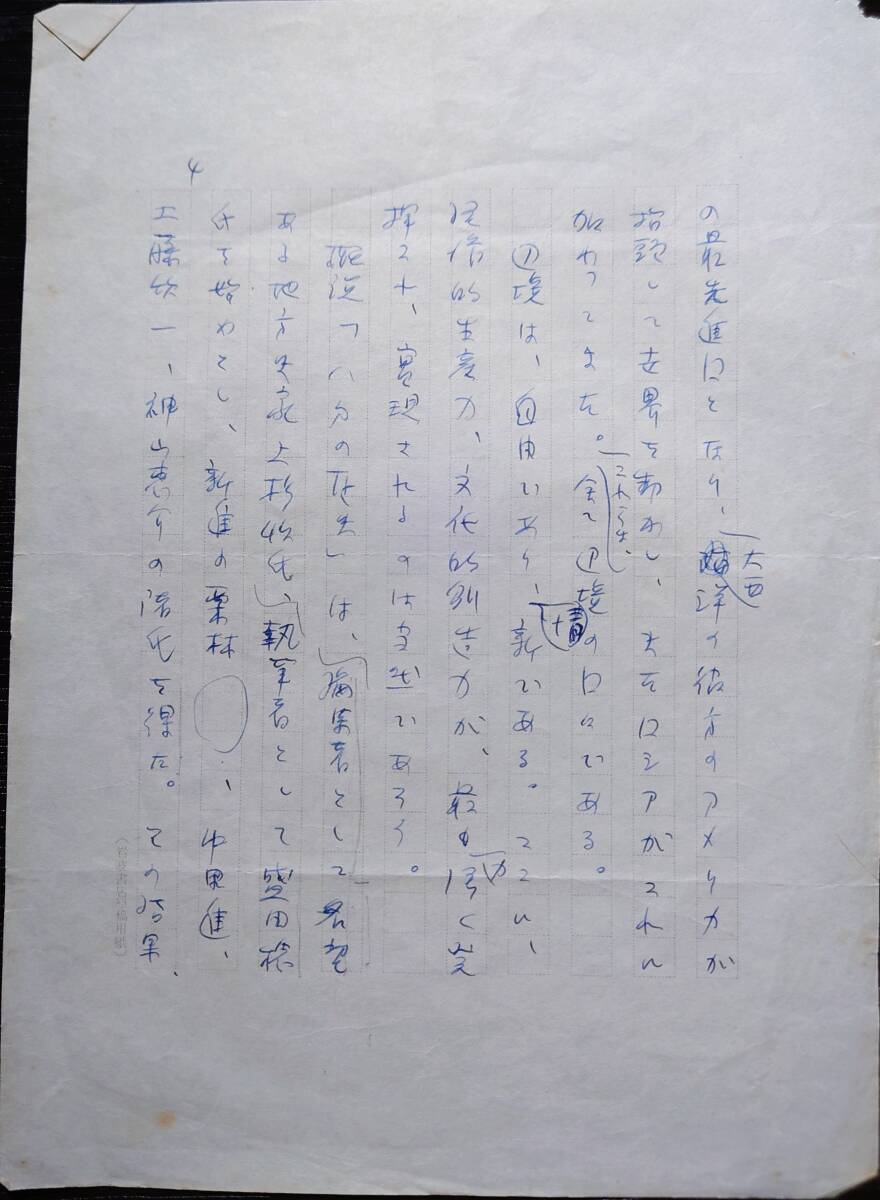 4
の最先進国となり、大西洋の彼方のアメリカが
抬頭して世界を動かし、またロシアがこれに
加わってきた。これらは、全て辺境の国々である。
辺境は、自由であり、新である。ここに、
的生産力、文化的創造力が、最も力強く発
揮され、実現されるのは当然であろう。
概説「八戸の歴史」は、編集者として名望
ある地方史家上杉修氏、執筆者として盛田稔
氏を始めとし、新進の栗林、中里進、
工藤欣一、神山恵介の諸氏を得た。その結果、
(岩波書店原稿用紙)